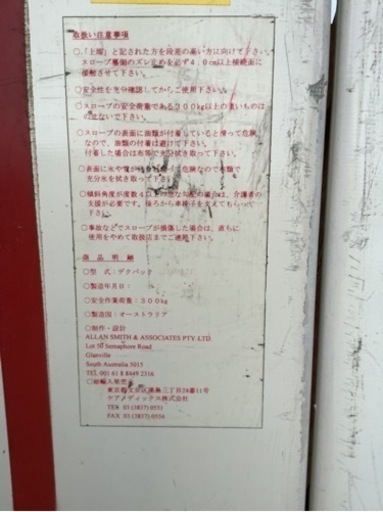 取扱い注意事項
○.「上端」と記された方を段差の高い方に向けて下さい。
スロープ裏側のズレ止めを必ず4.0cm以上接続面に
接触させて下さい。
○安全性を充分確認してからご使用下さい。
○スロープの安全荷重である300kg以上の重いものは
のせないで下さい。
○スロープの表面に油類が付着していると滑って危険
なので、油類の付着は避けて下さい。
付着した場合は布等で充分拭き取って下さい。
○表面に水や雪が 危険なので布類で
充分水を拭き取って下さい。
○傾斜角度が度数4以上の急な勾配の場合は、介護者の
支援が必要です。後ろから車椅子を支えてもらって
下さい。
○事故などでスロープが損傷した場合は、直ちに
使用をやめて取扱店までご連絡下さい。
商品明細
○型 式:デクパック
○製造年月日:
○安全作業荷重:300kg
○製造国:オーストラリア
○制作・設計
ALLAN SMITH & ASSOCIATES PTY. LTD.
Lot 50 Semaphore Road
Glanville
South Australia 5015
TEL 001 61 8 8449 2316
○総輸入発売元
東京都文京区湯島三丁目24番11号
ケアメディックス株式会社
TEL 03 (3837) 0553
FAX 03 (3837) 0556